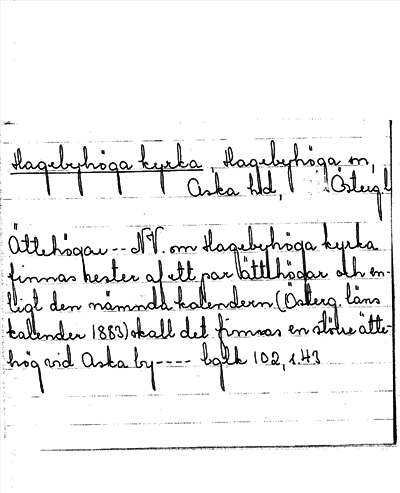 Hagebyhöga kyrka, Hagebyhöga sn,
Aska hd, Östergl
Ättehögar -- NV. om Hagebyhöga kyrka
finnas rester af ett par ättehögar och en-
ligt den nämnda kalendern (Österg. läns
kalender 1883) skall det finnas en större ätte-
hög vid Aska by ---- bglk 102, s.43